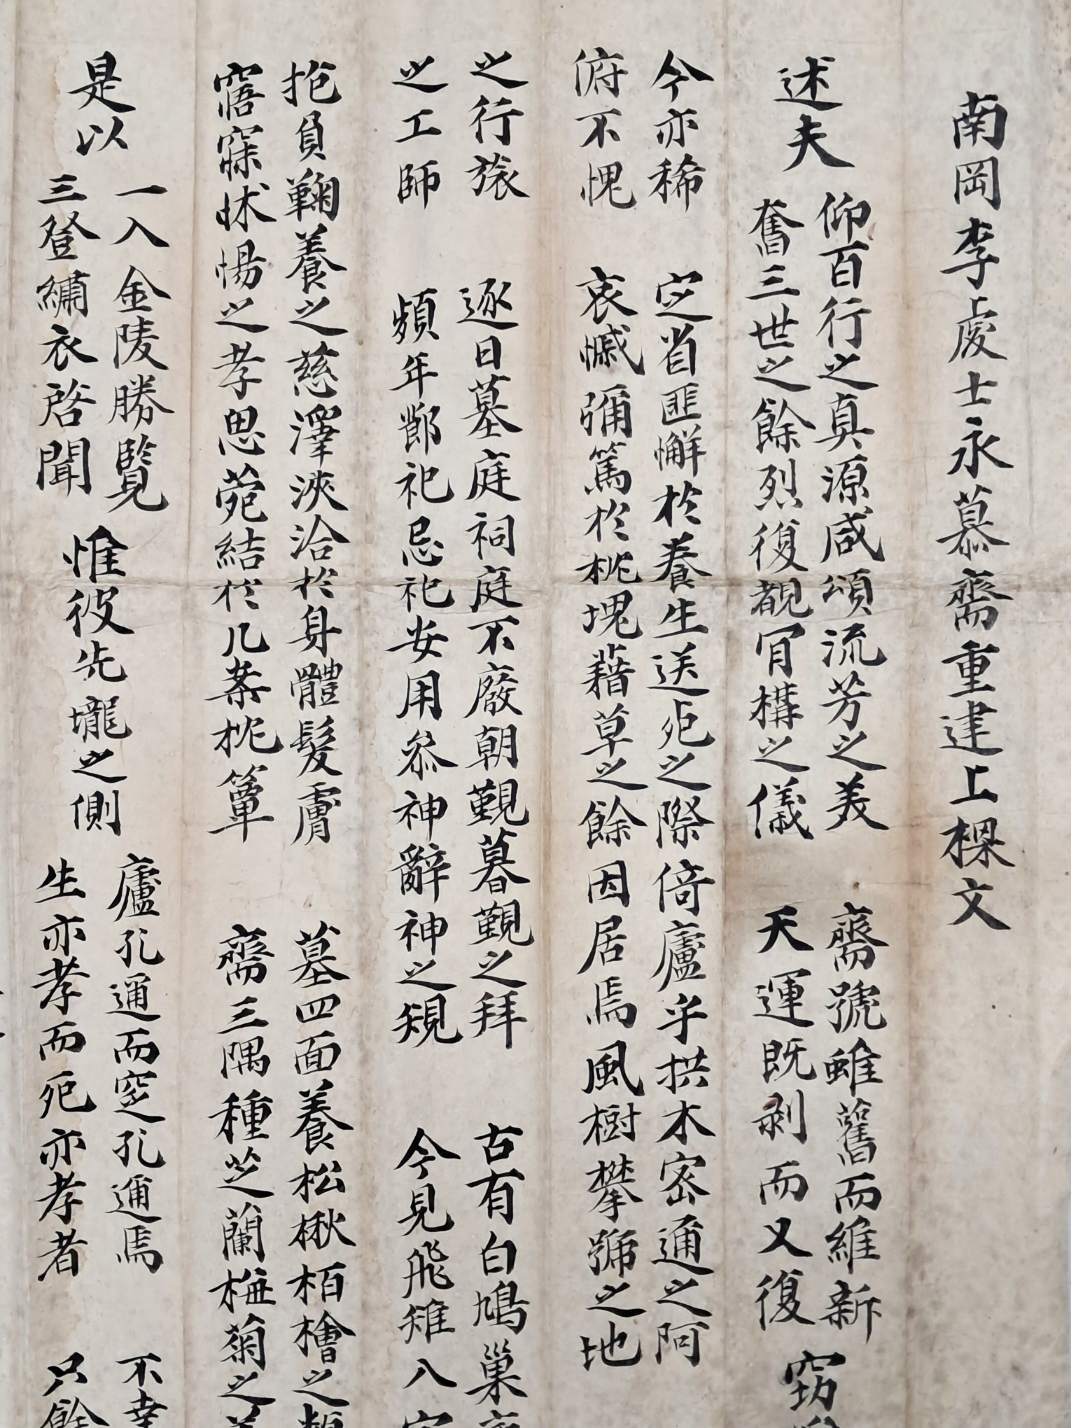 南岡李處士永慕齋重建上樑文
述夫
仰百行之眞源咸頌流芳之美
奮三世之餘烈復覩肎構之儀
齋號雖舊而維新
天運旣剝而又復
窃
今亦稀
俯不愧
定省匪懈於養生送死之際倚廬乎拱木密通之阿
哀慽彌篤於枕塊藉草之餘因居焉風樹攀號之地
之行旅
之工師
逐日墓庭祠庭不廢朝覲暮覲之拜
頻年郷祀忌祀安用叅神辭神之規
古有白鳩巢
今見飛雉入
抱負鞠養之慈澤浹洽於身體髮膚
寤寐怵惕之孝思菀結於几案枕簞
墓四面養松楸栢檜之
齋三隅種芝蘭梅菊之
是以
一入金陵勝覽
三登繡衣啓聞
惟彼先壠之側
廬孔通而窆孔通焉
生亦孝而死亦孝者
不幸
只餘